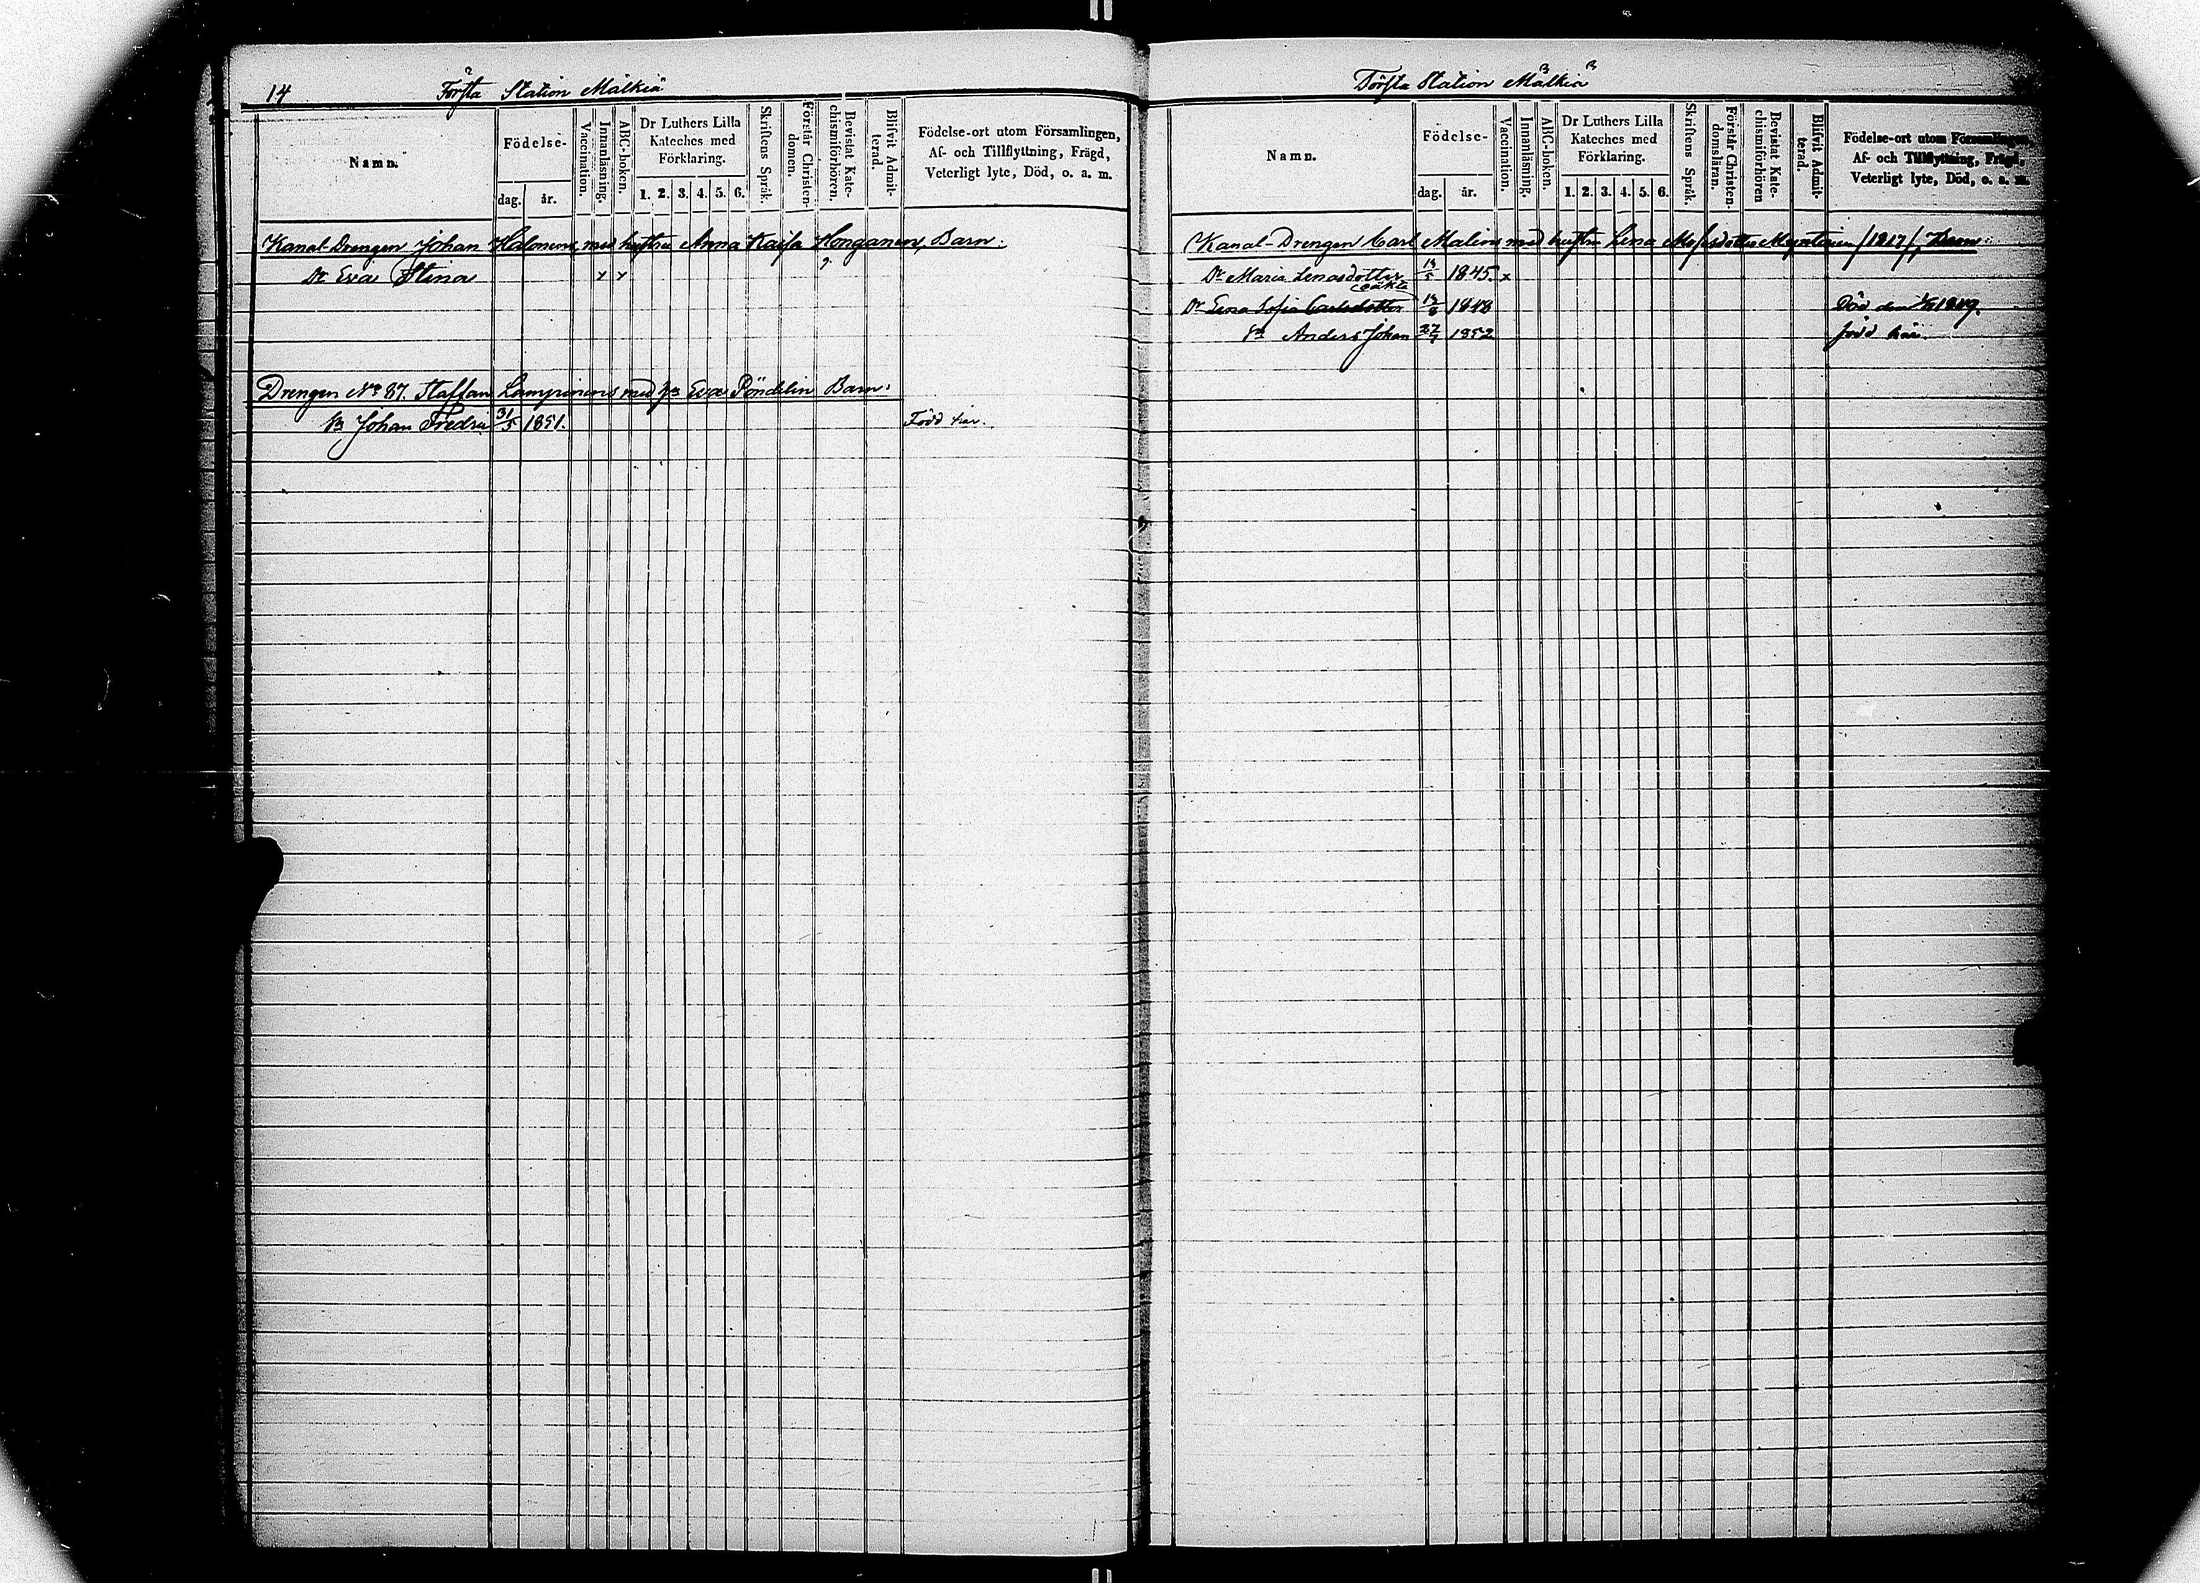 14
Första Station Mälkiä
Namn.
Födelse-
dag.
år.
Vaccination.
Innanläsning.
ABC-boken.
Dr Luthers Lilla
Kateches med
Förklaring.
1. 2. 3. 4. 5. 6.
Skriftens Språk.
Förstår Christen-
domen.
Bevistat Kate-
chismiförhören.
Blifvit Admit-
terad.
Födelse-ort utom Församlingen,
Af- och Tillflyttning, Frägd,
Veterligt lyte, Död, o. a. m.
Kanal-Drengen Johan Halonens med hustru Anna Kaisa Honganen, Barn:
Dr Eva Stina x x
Drengen No 87. Staffan Lampinens med hu Eva Pöndelin Barn:
Sn Johan Fredric 31/5 1851. Född här.
Första Station Mälkiä
Namn.
Födelse-
dag.
år.
Vaccination.
Innanläsning.
ABC-boken.
Dr Luthers Lilla
Kateches med
Förklaring.
1. 2. 3. 4. 5. 6.
Skriftens Språk.
Förstår Christen-
domsläran.
Bevistat Kate-
chismiförhören
Blifvit Admit-
terad.
Födelse-ort utom Församlingen,
Af- och Tillflyttning, Frägd,
Veterligt lyte, Död, o. a. m.
Kanal-Drengen Carl Malins med hustru Lena Myntinen /1817/, Barn:
Dr Maria Lenasdotter 1845. x
oäkta
Dr Lena Sofia Carlsdotter 1848 Död den 1849.
Sn Anders Johan 1852 född här.